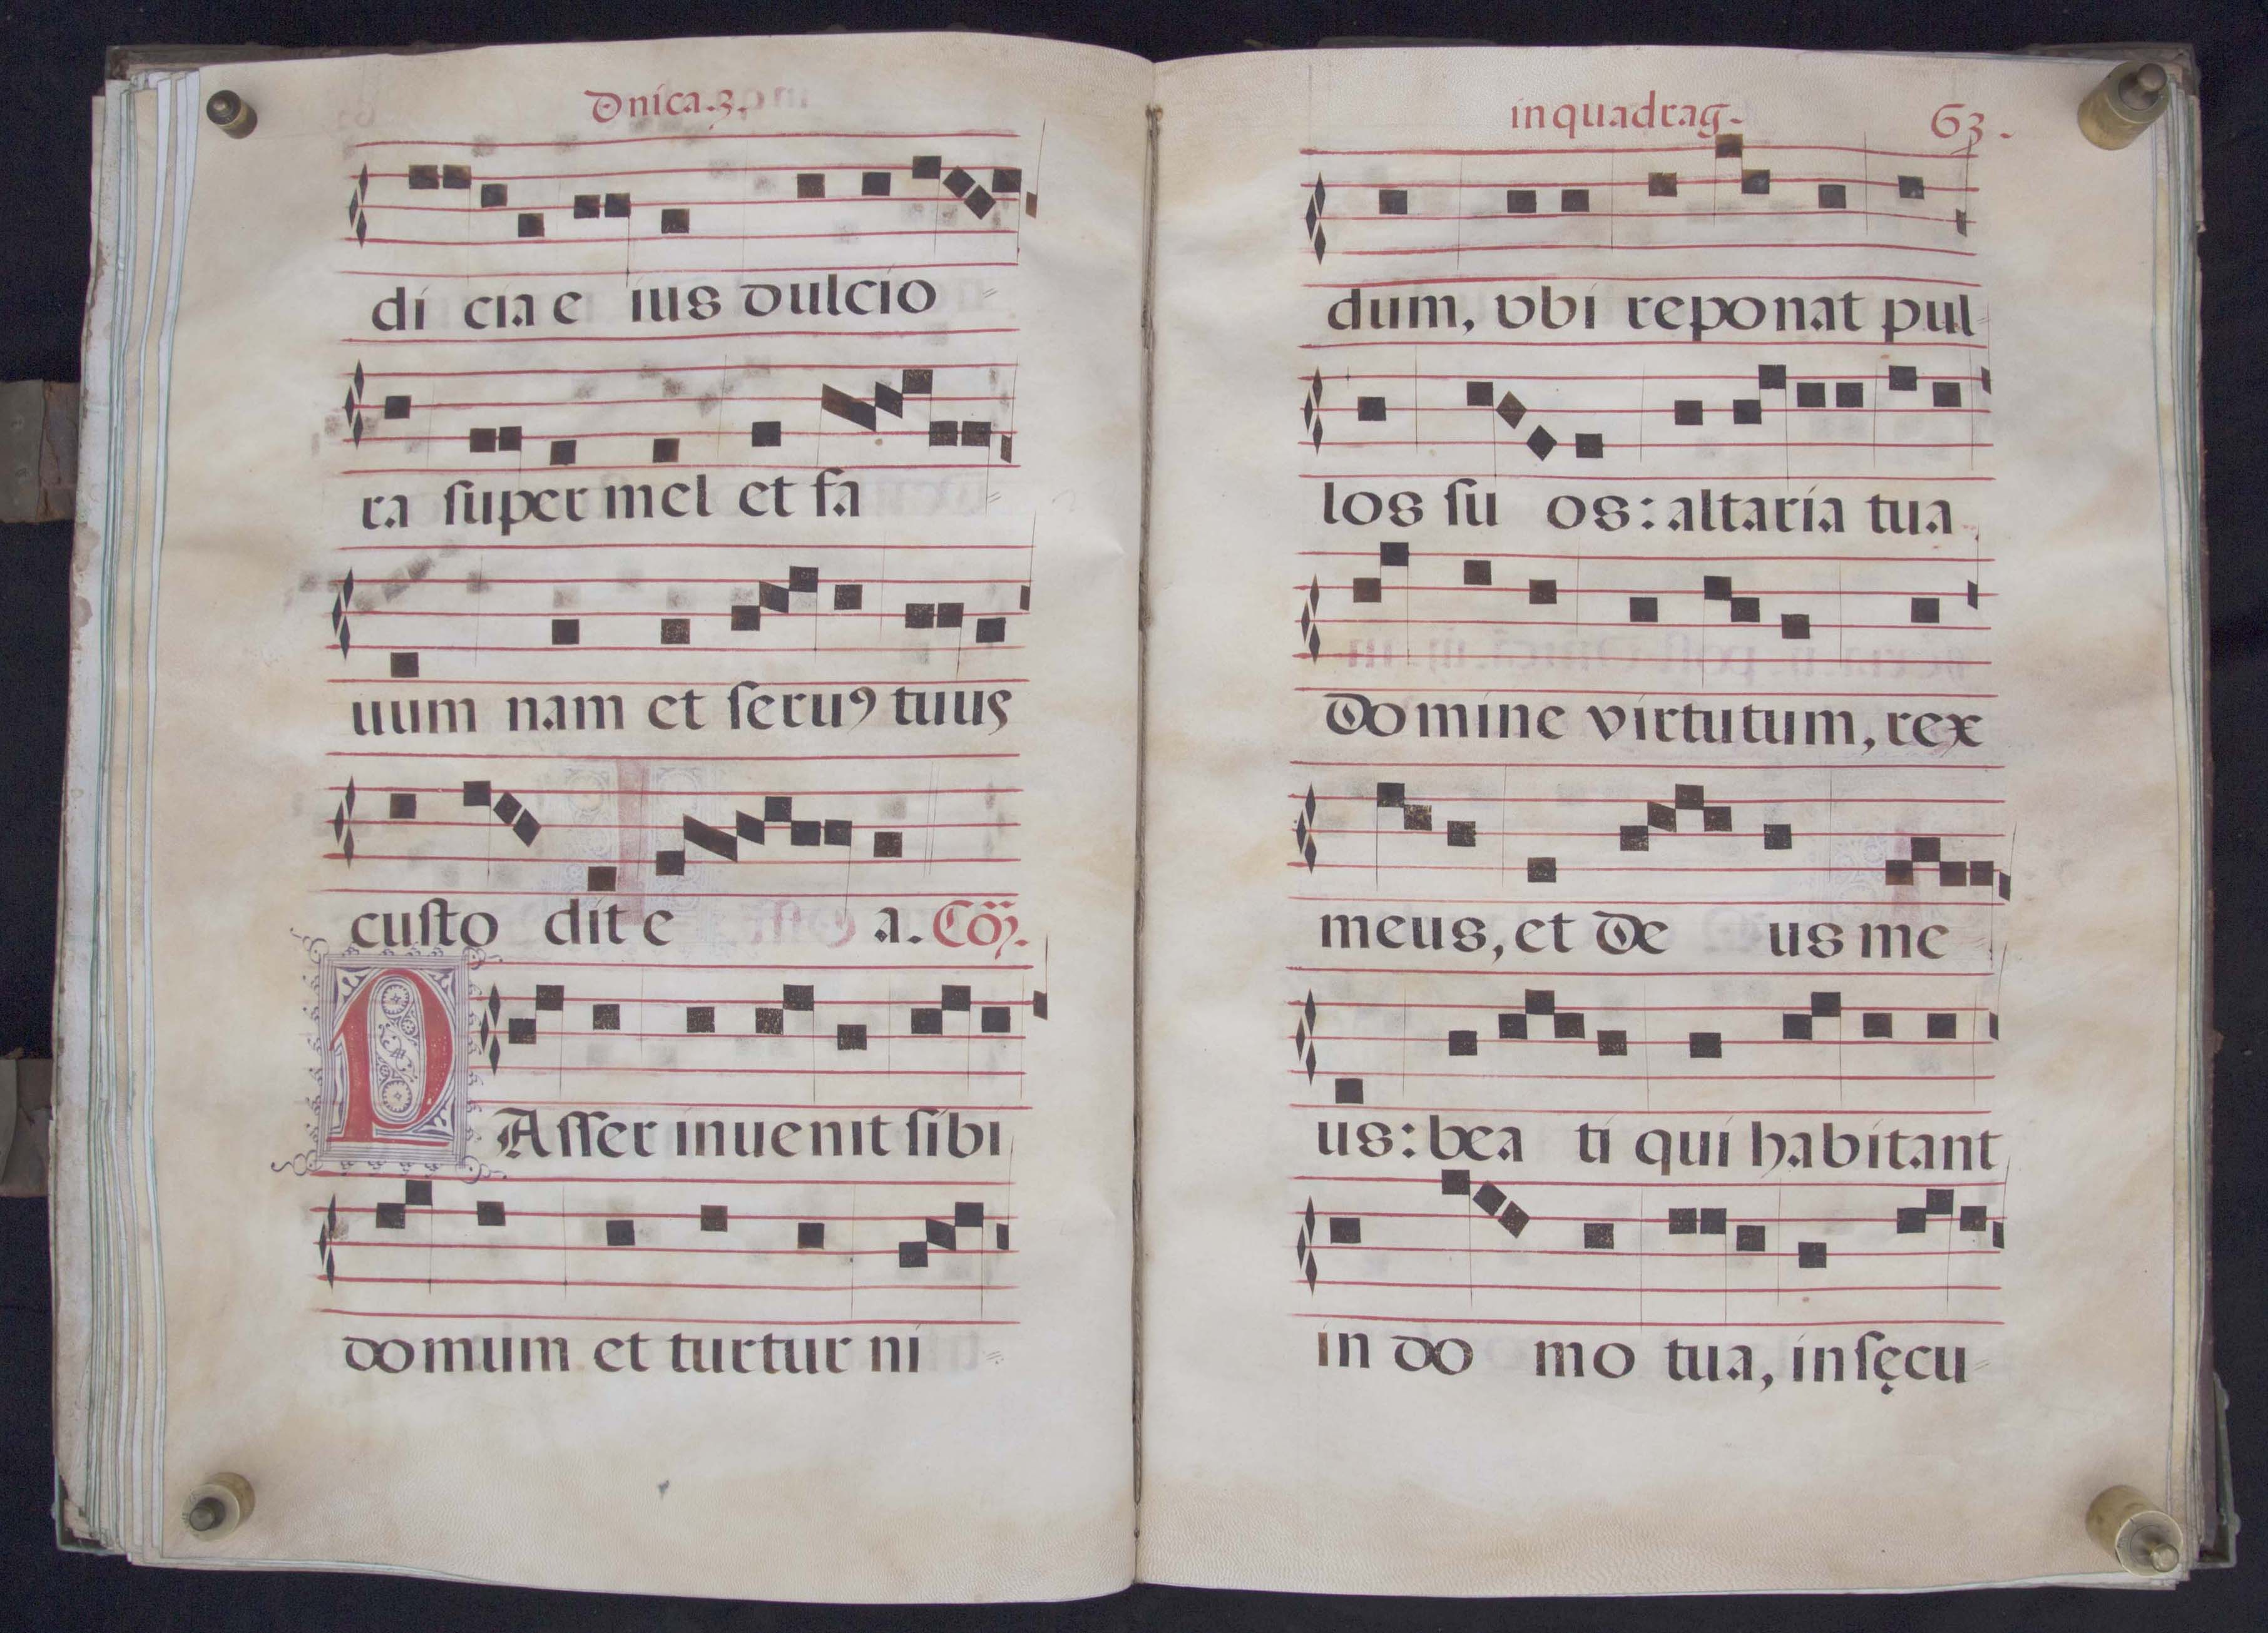 Dnica.3.
di cia e ius dulcio=
ra ſuper mel et fa =
uum nam et ſeruꝯ tuus
cuſto dit e a. Cō.
PAſſer inuenit ſibi
domum et turtur ni =
in quadrag. 63.
dum, vbi reponat pul-
los ſu os: altaria tua
Domine virtutum, rex
meus, et De us me
us: bea ti qui habitant
in do mo tua, in ſęcu=